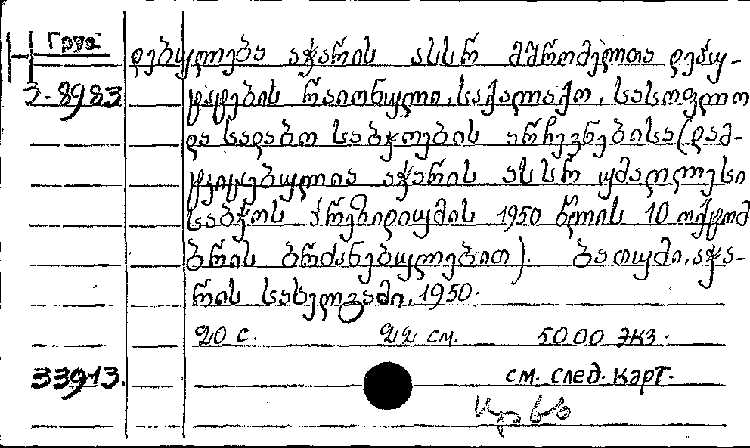 Груз
დებულება აჭარის ასსრ მშრომელთა დეპუ-
3-8983 ტატების რაიონული, საქალაქო, სასოფლო
და სადაბო საბჭოების არჩევნებისა (დამ-
ტკიცებულია აჭარის ასსრ უმაღლესი
საბჭოს პრეზიდიუმის 1950 წლის 10 ოქტომ
ბრის ბრძანებულებით). ბათუმი, აჭა-
რის სახელგამი, 1950.
20 с. 22 см. 5000 экз.
33913. см. след. карт.